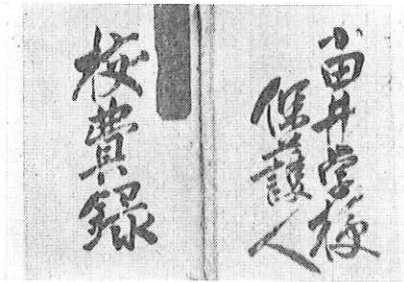 小田井学校
保護人
校費録